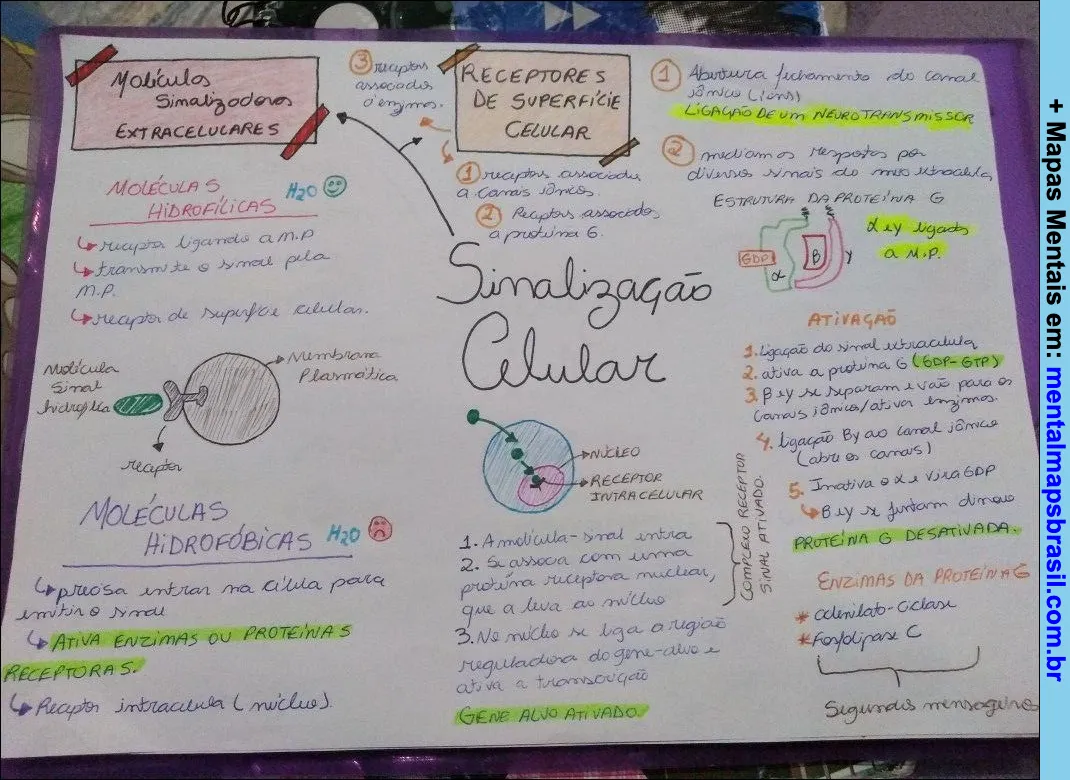 Moléculas
Sinalizadoras
EXTRACELULARES
MOLÉCULAS
HIDROFÍLICAS
H2O
↳ receptor ligando a M.P
↳ transmite o sinal pela
M.P.
↳ receptor de superfície celular.
Molécula
Sinal
hidrofílica
Membrana
Plasmática
receptor
MOLÉCULAS
HIDROFÓBICAS
H2O
↳ precisa entrar na célula para
emitir o sinal
↳ ATIVA ENZIMAS OU PROTEÍNAS
RECEPTORAS.
↳ Receptor intracelula (núcleo).
Sinalização
Celular
RECEPTORES
DE SUPERFÍCIE
CELULAR
① receptores associados
a canais iônicos.
② Receptores associados
a proteína G.
③ receptores
associados
a enzimas.
NÚCLEO
RECEPTOR
INTRACELULAR
1. A molécula-sinal entra
2. Se associa com uma
proteína receptora nuclear,
que a leva ao núcleo
COMPLEXO RECEPTOR
SINAL ATIVADO.
3. No núcleo se liga a região
reguladora do gene-alvo e
ativa a transcrição
GENE ALVO ATIVADO.
① Abertura fechamento do canal
iônico (íons)
LIGAÇÃO DE UM NEUROTRANSMISSOR
② mediam as respostas por
diversos sinais do meio extracelula,
ESTRUTURA DA PROTEÍNA G
GDP
α
β
γ
α e γ ligados
a M.P.
ATIVAÇÃO
1. ligação do sinal extracelula
2. ativa a proteína G (GDP-GTP)
3. β e γ se separam e vão para os
canais iônicos/ativa enzimas.
4. ligação βγ ao canal iônico
(abre os canais)
5. Inativa o α e vira GDP
↳ β e γ se juntam dinovo
PROTEÍNA G DESATIVADA.
ENZIMAS DA PROTEÍNA G
* adenilato-ciclase
* Fosfolipase C
Segundos mensageiros
+ Mapas Mentais em: mentalmapsbrasil.com.br